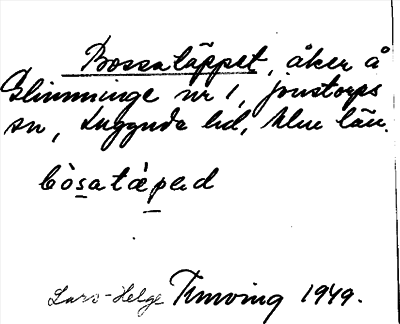 Bossatäppet, åker å
Glimminge nr 1, Jonstorps
sn, Luggude hd, Mlm län.
bòsatæpəd
Lars-Helge Tunving 1949.